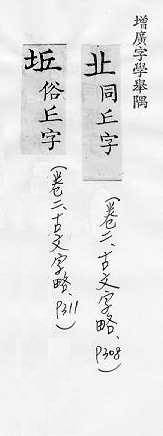 增廣字學舉隅
㐀同丘字
(卷二、古文字略、P308)
坵俗丘字
(卷二、古文字略、P311)